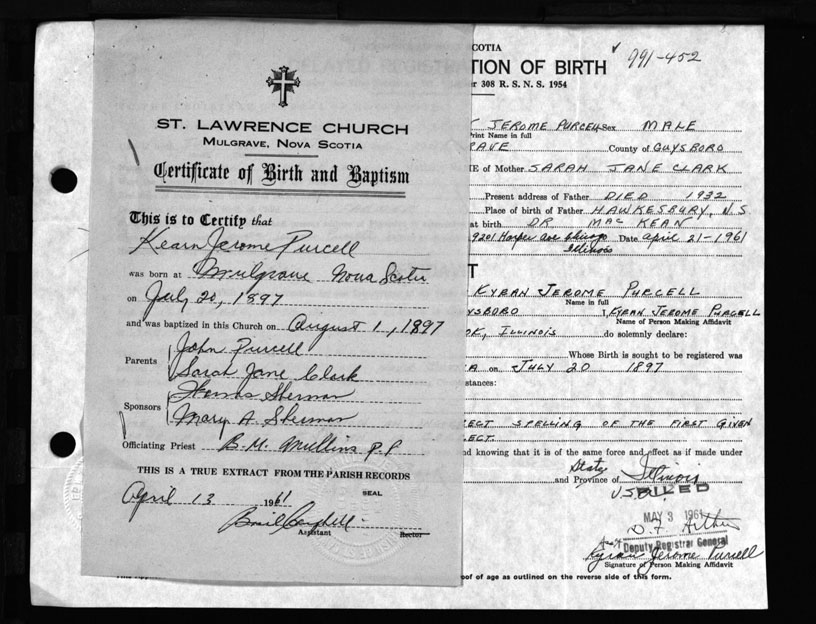 ST. LAWRENCE CHURCH
MULGRAVE, NOVA SCOTIA
Certificate of Birth and Baptism
This is to Certify that
Kearn Jerome Purcell
was born at Mulgrave Nova Scotia
on July 20, 1897
and was baptized in this Church on August 1, 1897
Parents
John Purcell
Sarah Jane Clark
Sponsors
Sherman
Mary A. Sherman
Officiating Priest B. M. Mullins P.P.
THIS IS A TRUE EXTRACT FROM THE PARISH RECORDS
April 13 1961 SEAL
Assistant Rector
SCOTIA
991-452
TION OF BIRTH
308 R. S. N. S. 1954
JEROME PURCELL Sex MALE
Print Name in full
RAVE County of GUYSBORO
E of Mother SARAH JANE CLARK
Present address of Father DIED 1932
Place of birth of Father HAWKESBURY, N.S
at birth DR. MAC KEAN
9201 Harper ave Chicago Date April 21-1961
Illinois
T
KYRAN JEROME PURCELL
Name in full
YSBORO I, KYRAN JEROME PURCELL
Name of Person Making Affidavit
OK, ILLINOIS do solemnly declare:
Whose Birth is sought to be registered was
A on JULY 20 1897
stances:
ECT SPELLING OF THE FIRST GIVEN
ECT.
d knowing that it is of the same force and effect as if made under
State
and Province of Illinois
U.S.A.
FILED
MAY 3 1961
Deputy Registrar General
Kyran Jerome Purcell
Signature of Person Making Affidavit
oof of age as outlined on the reverse side of this form.